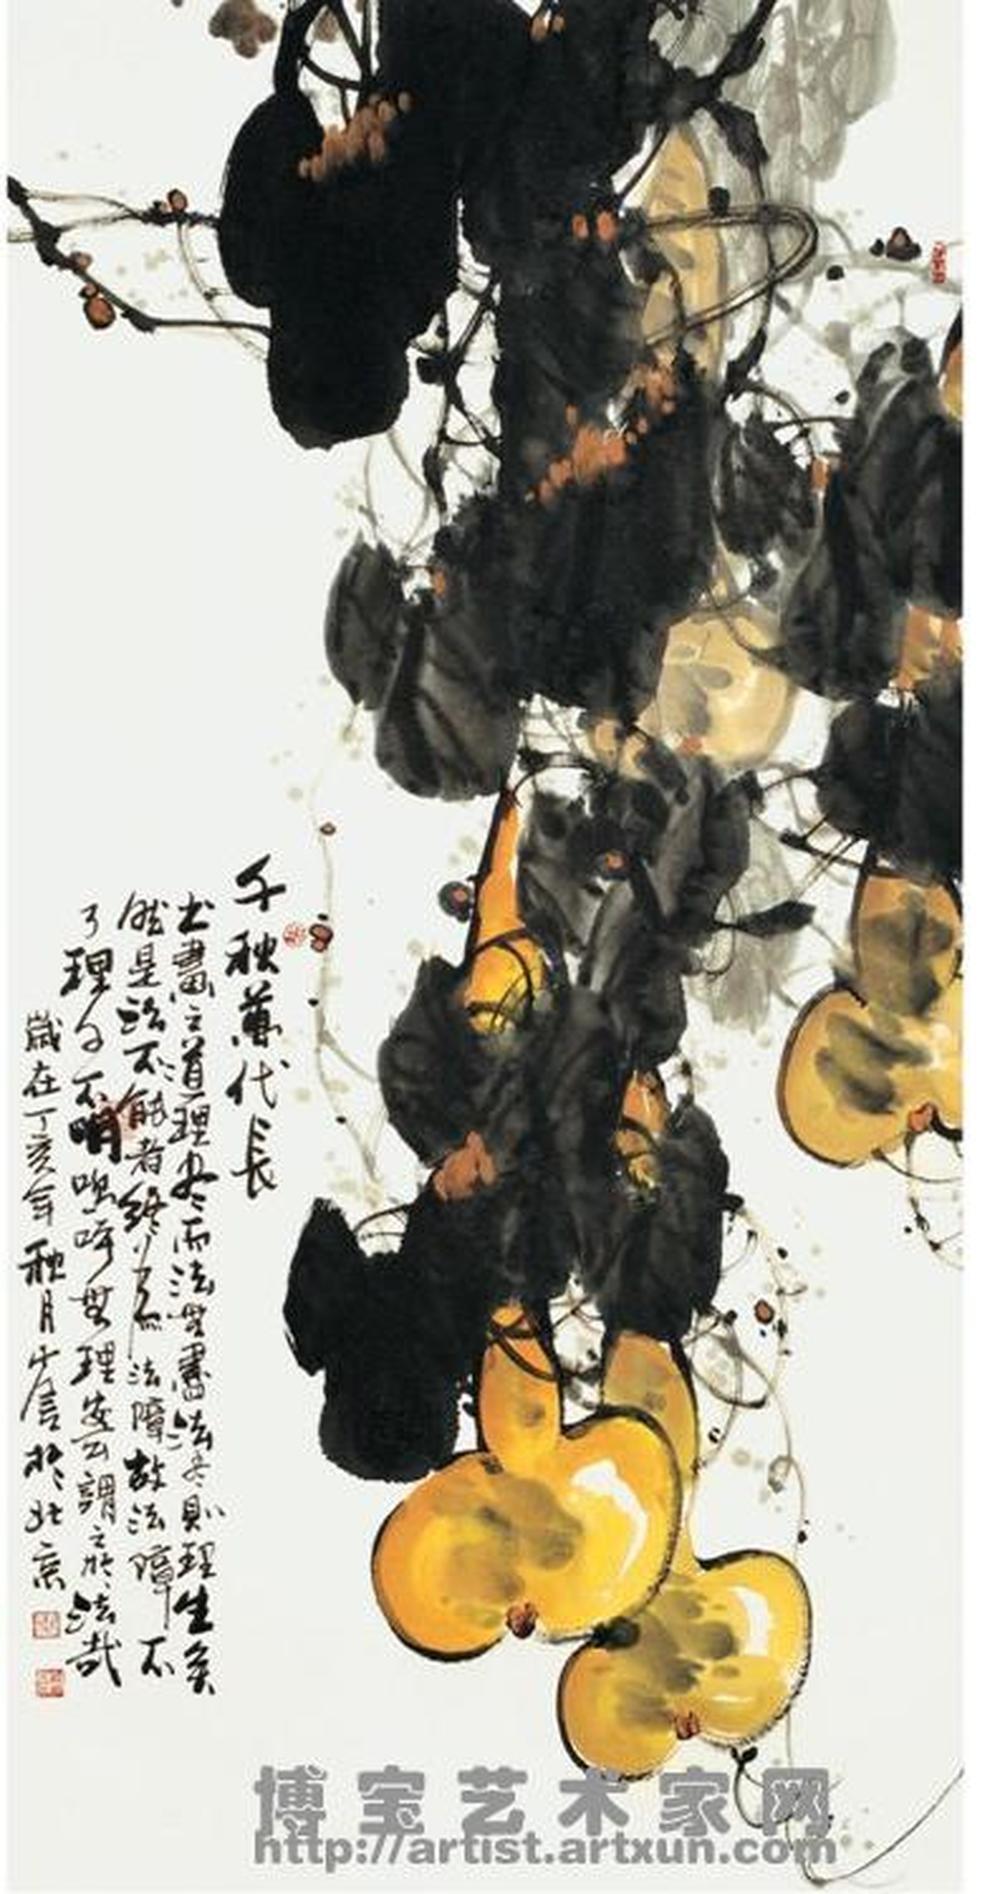 千秋萬代長
书畫之道理尽而法無盡法尽则理生矣
然是法不能者终为法障故法障不
了理乃不明嗚呼無理安云謂之於法哉
歲在丁亥年秋月少信於北京
博宝艺术家网
http://artist.artxun.com